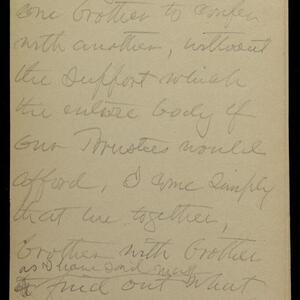 one brother to confer
with another, without
the support which
the entire body of
our Trustees would
afford, I come simply
that we together,
brother with brother
as I have said may
find out what